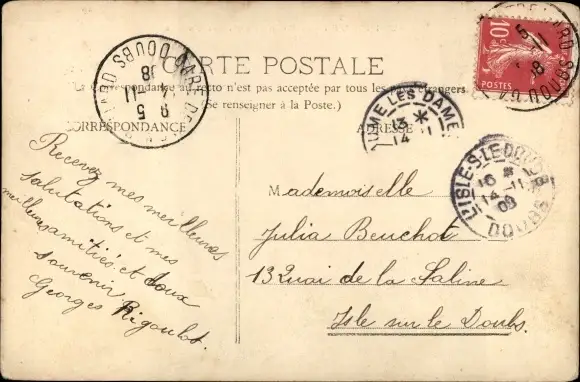 CARTE POSTALE
La correspondance au recto n'est pas acceptée par tous les pays étrangers
(Se renseigner à la Poste.)
CORRESPONDANCE
ADRESSE
10c
POSTES
DOUBS
BAUME LES DAMES
13 *
14 -11
L'ISLE-S-LE DOUBS
16 *
14 -11
08
DOUBS
Recevez mes meilleures
salutations et mes
meilleures amitiés et doux
souvenir
Georges Rigoulot.
Mademoiselle
Julia Beuchot
13 Quai de la Saline
Isle sur le Doubs.